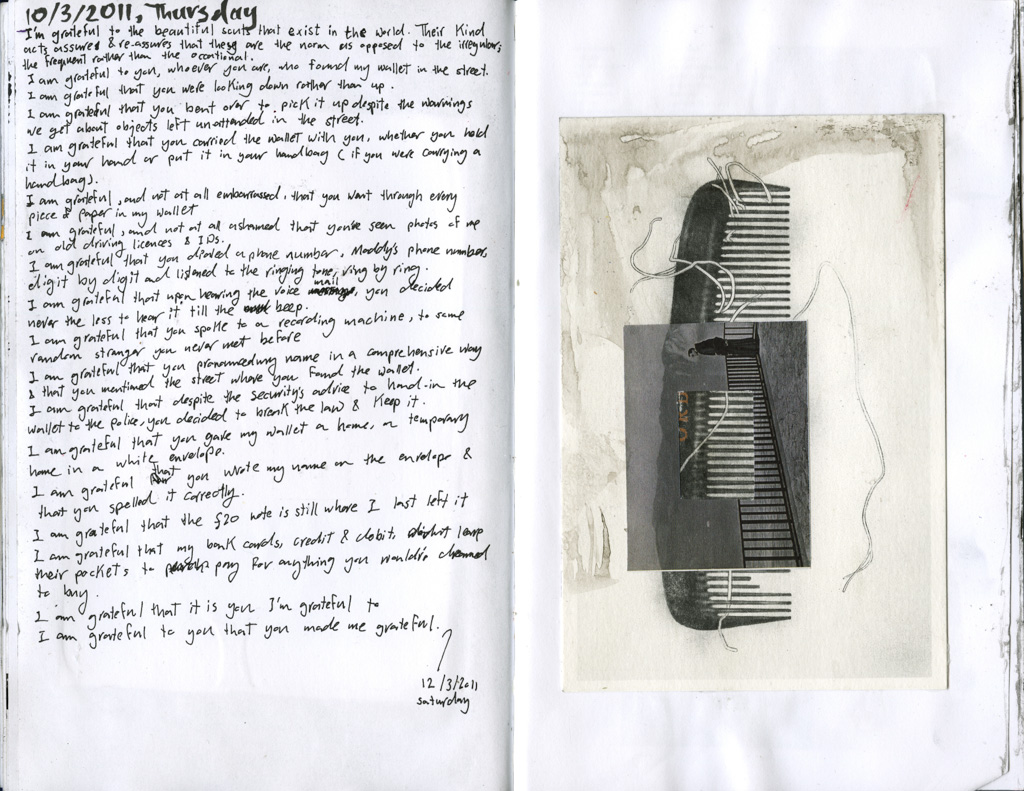 10/3/2011, Thursday
I'm grateful to the beautiful souls that exist in the world. Their kind
acts assures & re-assures that these are the norm as opposed to the irregular,
the frequent rather than the occational.
I am grateful to you, whoever you are, who found my wallet in the street.
I am grateful that you were looking down rather than up.
I am grateful that you bent over to pick it up despite the warnings
we get about objects left unattended in the street.
I am grateful that you carried the wallet with you, whether you held
it in your hand or put it in your handbag (if you were carrying a
handbag).
I am grateful, and not at all embarrassed, that you went through every
piece of paper in my wallet
I am grateful, and not at all ashamed that you've seen photos of me
on old driving licences & IDs.
I am grateful that you dialed a phone number, Maddy's phone number,
digit by digit and listened to the ringing tone, ring by ring.
I am grateful that upon hearing the voice mail, you decided
never the less to hear it till the beep.
I am grateful that you spoke to a recording machine, to some
random stranger you never met before
I am grateful that you pronounced my name in a comprehensive way
& that you mentioned the street where you found the wallet.
I am grateful that despite the security's advice to hand-in the
wallet to the police, you decided to break the law & keep it.
I am grateful that you gave my wallet a home, a temporary
home in a white envelope.
I am grateful that you wrote my name on the envelope &
that you spelled it correctly.
I am grateful that the £20 note is still where I last left it
I am grateful that my bank cards, credit & debit, didn't leave
their pockets to pay for anything you would've
to buy.
I am grateful that it is you I'm grateful to
I am grateful to you that you made me grateful.
12/3/2011
saturday